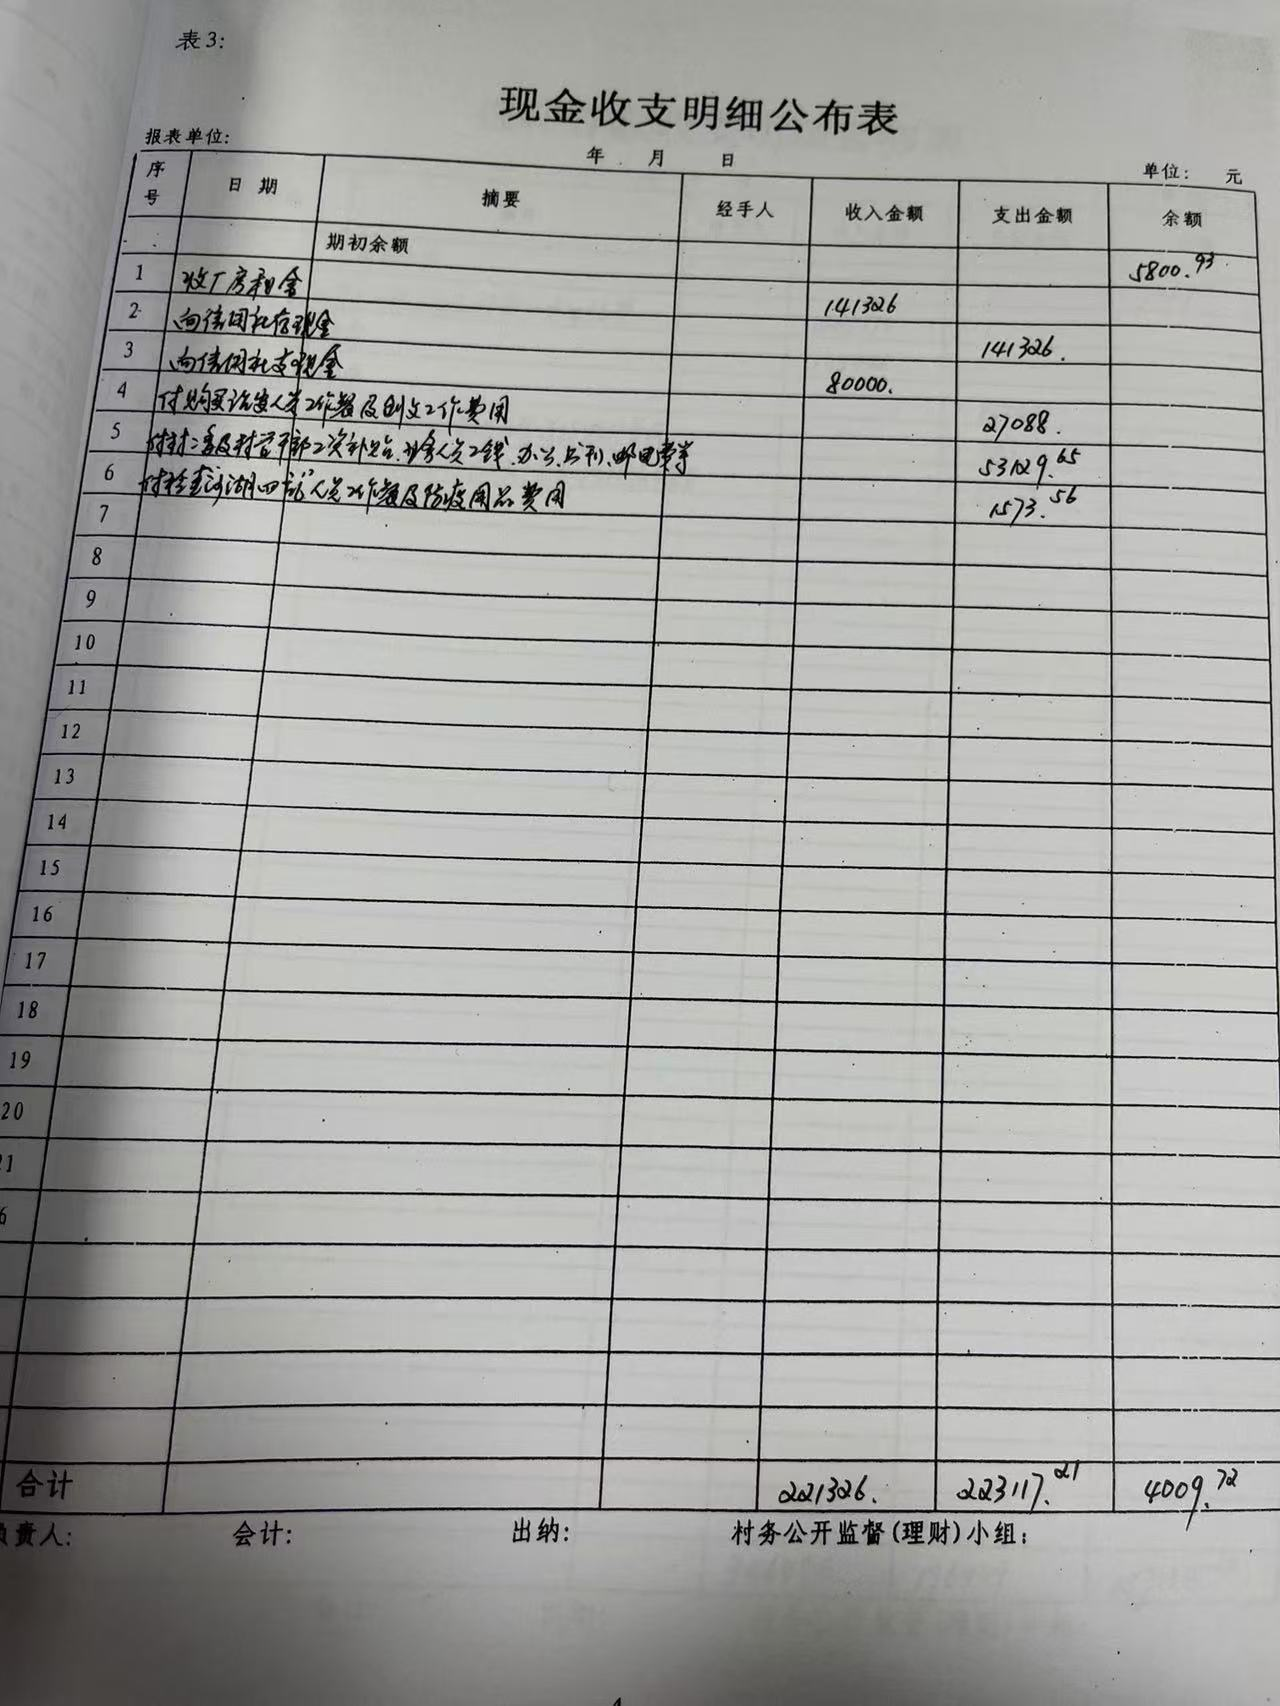 表3:
现金收支明细公布表
报表单位:
年 月 日 单位: 元
序号 日期 摘要 经手人 收入金额 支出金额 余额
期初余额 5800.93
1 收厂房租金 141326
2 向信用社存现金 141326.
3 向信用社支现金 80000.
4 付购买 人员工作餐及创文工作费用 27088.
5 付村二委及村管干部工资补贴、 人员工钱、办公、书刊、邮电费等 53129.65
6 付检查河湖"四乱"人员工作餐及防疫用品费用 1573.56
7
8
9
10
11
12
13
14
15
16
17
18
19
20
21
6
合计 221326. 223117.21 4009.72
负责人: 会计: 出纳: 村务公开监督(理财)小组: